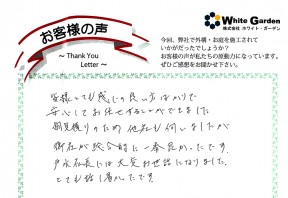 お客様の声
～ Thank You
Letter ～
White Garden
株式会社 ホワイト・ガーデン
今回、弊社で外構・お庭を施工されて
いかがだったでしょうか？
お客様の声が私たちの原動力になっています。
ぜひご感想をお聞かせ下さい。
皆様とても感じの良い方ばかりで
安心してお任せすることができました。
相見積りのため他社も伺いましたが
御社が総合的に一番良かったです。
戸永社長には大変お世話になりました。
とても話し易かったです。